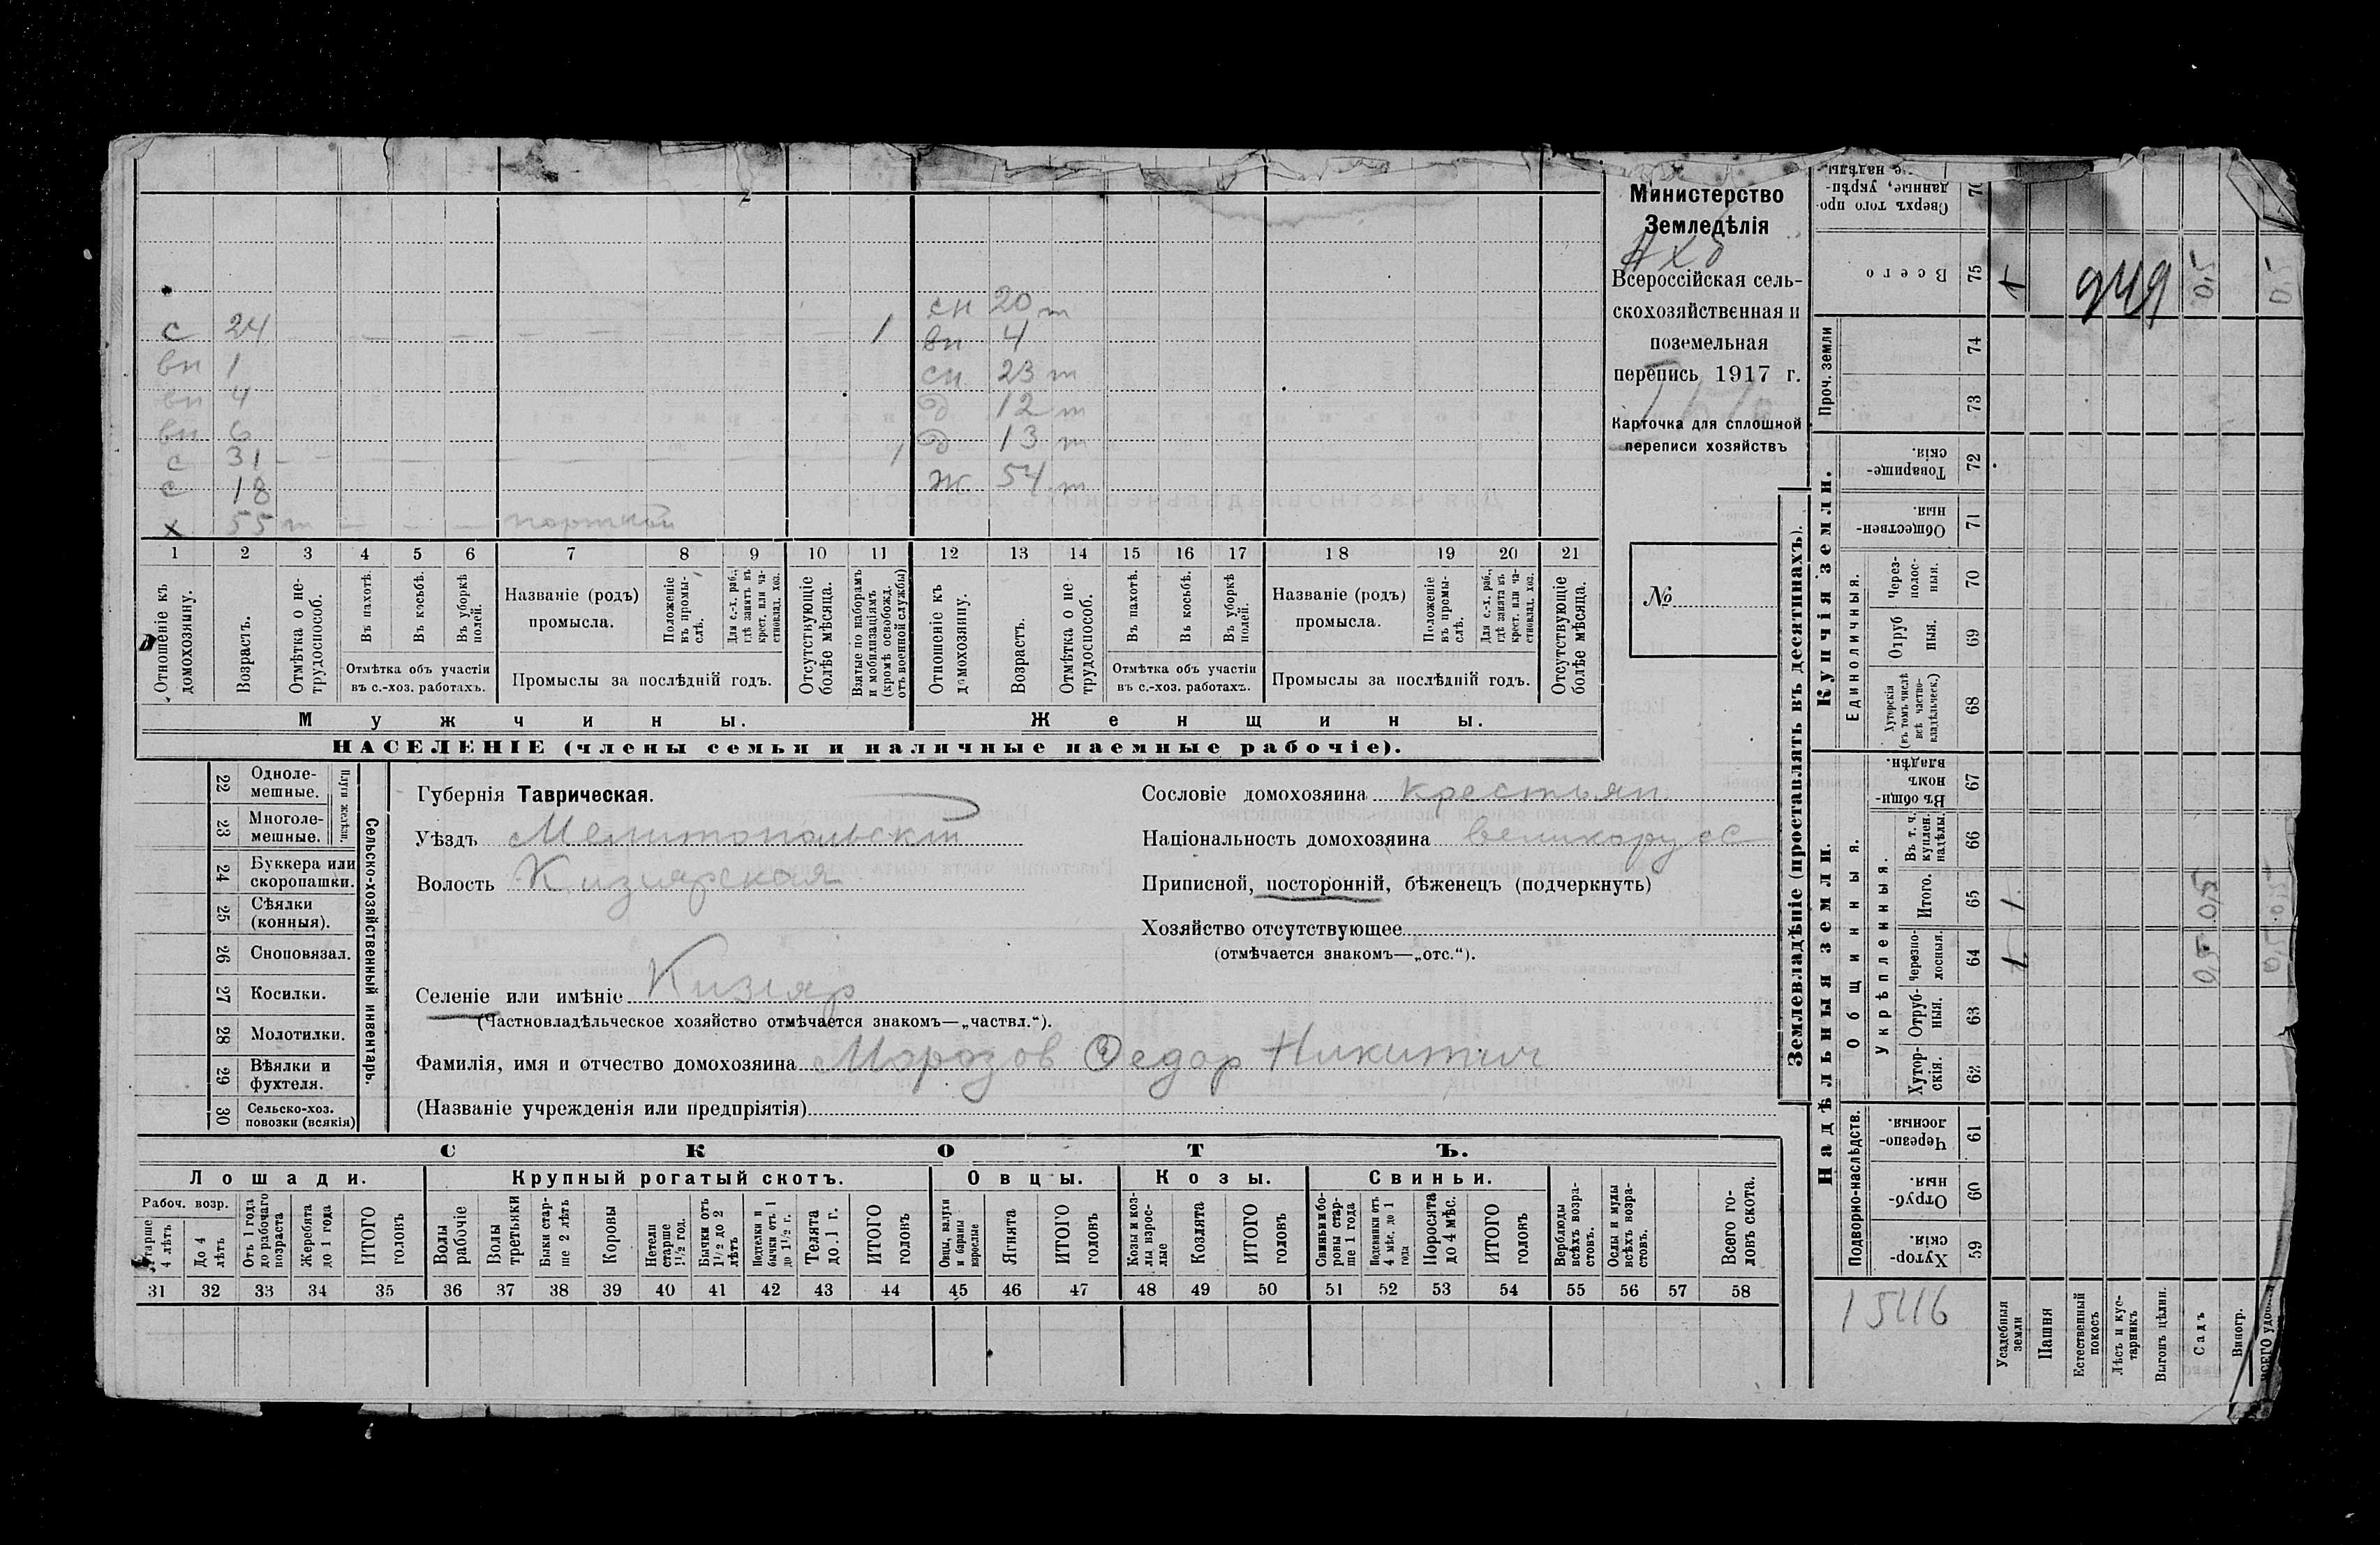 Министерство
Земледѣлія
Всероссійская сель-
скохозяйственная и
поземельная
перепись 1917 г.
Карточка для сплошной
переписи хозяйствъ
№
сн 20 т
с 24 1 вн 4
вн 1 сн 23 т
вн 4 д 12 т
вн 6 д 13 т
с 31 1
с 18 ж 54 т
х 55 т портной
1 2 3 4 5 6 7 8 9 10 11 12 13 14 15 16 17 18 19 20 21
Отношеніе къ домохозяину.
Возрастъ.
Отмѣтка о не-трудоспособ.
Въ пахотѣ.
Въ косьбѣ.
Въ уборкѣ полей.
Отмѣтка объ участіи
въ с.-хоз. работахъ.
Названіе (родъ)
промысла.
Положеніе въ промы-слѣ.
Для с.-х. раб., гдѣ занятъ въ крест. или ча-стновлад. хоз.
Промыслы за послѣдній годъ.
Отсутствующіе болѣе мѣсяца.
Взятые по наборамъ и мобилизаціямъ (кромѣ освобожд. отъ военной службы)
Отношеніе къ домохозяину.
Возрастъ.
Отмѣтка о не-трудоспособ.
Въ пахотѣ.
Въ косьбѣ.
Въ уборкѣ полей.
Отмѣтка объ участіи
въ с.-хоз. работахъ.
Названіе (родъ)
промысла.
Положеніе въ промы-слѣ.
Для с.-х. раб., гдѣ занята въ крест. или ча-стновлад. хоз.
Промыслы за послѣдній годъ.
Отсутствующіе болѣе мѣсяца.
Мужчины. Женщины.
НАСЕЛЕНІЕ (члены семьи и наличные наемные рабочіе).
22 Одноле-мешные.
23 Многоле-мешные.
Плуги желѣзн.
24 Буккера или скоропашки.
25 Сѣялки (конныя).
26 Сноповязал.
27 Косилки.
28 Молотилки.
29 Вѣялки и фухтеля.
30 Сельско-хоз. повозки (всякія)
Сельско-хозяйственный инвентарь.
Губернія Таврическая.
Уѣздъ Мелитопольскій
Волость Кизиярская
Сословіе домохозяина крестьян
Національность домохозяина великорусс
Приписной, посторонній, бѣженецъ (подчеркнуть)
Хозяйство отсутствующее
(отмѣчается знакомъ—„отс.“).
Селеніе или имѣніе Кизияр
(Частновладѣльческое хозяйство отмѣчается знакомъ—„частвл.“).
Фамилія, имя и отчество домохозяина Морозов Федор Никитич
(Названіе учрежденія или предпріятія)
СКОТЪ.
Лошади. Крупный рогатый скотъ. Овцы. Козы. Свиньи.
Рабоч. возр.
Старше 4 лѣтъ
До 4 лѣтъ
Отъ 1 года до рабочаго возраста
Жеребята до 1 года
ИТОГО головъ
Волы рабочіе
Волы третьяки
Быки стар-ше 2 лѣтъ
Коровы
Нетели старше 1½ год.
Бычки отъ 1½ до 2 лѣтъ
Подтелки и бычки отъ 1 до 1½ г.
Телята до 1 г.
ИТОГО головъ
Овцы, валухи и бараны взрослые
Ягнята
ИТОГО головъ
Козы и коз-лы взрос-лые
Козлята
ИТОГО головъ
Свиньи и бо-ровы стар-ше 1 года
Подсвинки отъ 4 мѣс. до 1 года
Поросята до 4 мѣс.
ИТОГО головъ
Верблюды всѣхъ возра-стовъ.
Ослы и мулы всѣхъ возра-стовъ.
Всего го-ловъ скота.
31 32 33 34 35 36 37 38 39 40 41 42 43 44 45 46 47 48 49 50 51 52 53 54 55 56 57 58
Землевладѣніе (проставлять въ десятинахъ).
Сверхъ того про-данные, укрѣ-
надѣлы.
Всего 75 1 0,5 0,5
949
Проч. земли
74
73
Купчія земли.
Товарище-скія. 72
Обществен-ныя. 71
Единоличныя.
Через-полос-ныя. 70
Отруб ныя. 69
Хуторскія (въ томъ числѣ всѣ частно-владѣльческ.) 68
Надѣльныя земли.
Общинныя.
Въ общи-номъ владѣн. 67
Укрѣпленныя.
Въ т. ч. куплен. надѣлы. 66
Итого. 65 1 0,5 0,5
Черезпо-лосныя. 64 1 0,5 0,5
Отруб-ныя. 63
Хутор-скія. 62
Подворно-наслѣдств.
Черезпо-лосныя. 61
Отруб-ныя. 60
Хутор-скія. 59
1546
Усадебныя земли
Пашня
Естественный покосъ
Лѣсъ и кус-тарникъ
Выгонъ цѣлин.
Садъ
Виногр.